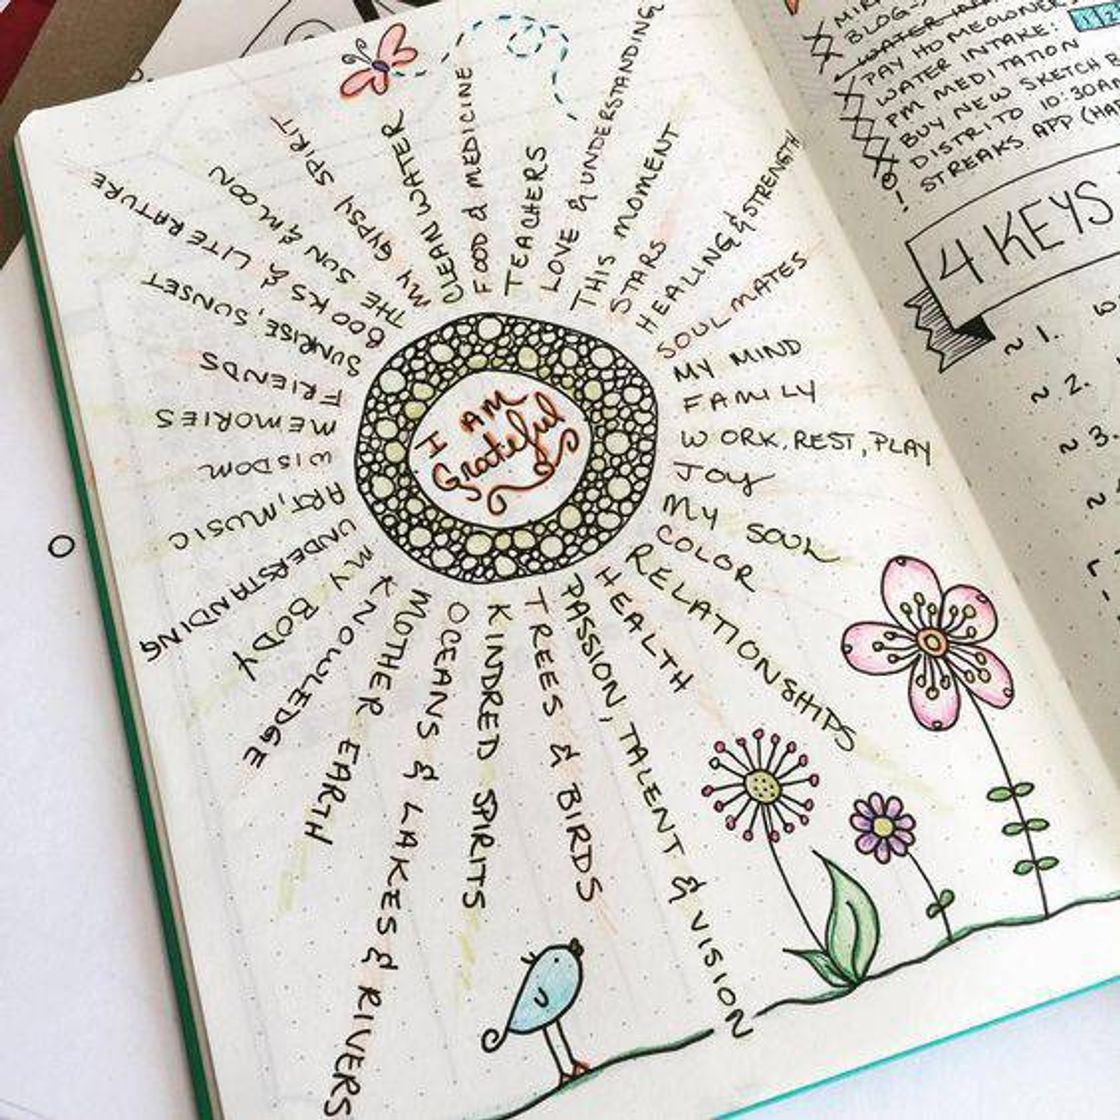 I AM
Grateful
CLEAN WATER
FOOD & MEDICINE
TEACHERS
LOVE & UNDERSTANDING
THIS MOMENT
STARS
HEALING & STRENGTH
SOUL MATES
MY MIND
FAMILY
WORK, REST, PLAY
JOY
MY SOUL
COLOR
RELATIONSHIPS
HEALTH
PASSION, TALENT & VISION
TREES & BIRDS
KINDRED SPIRITS
OCEANS & LAKES & RIVERS
MOTHER EARTH
KNOWLEDGE
MY BODY
UNDERSTANDING
ART, MUSIC
WISDOM
MEMORIES
FRIENDS
SUNRISE, SUNSET
BOOKS & LITERATURE
THE SUN & MOON
MY GYPSY SPIRIT
BLOG
PAY HOMEOWNERS
WATER INTAKE:
PM MEDITATION
BUY NEW SKETCH B
DISTRITO 10:30A
STREAKS APP (HA
4 KEYS
~ 1.
~ 2.
~ 3